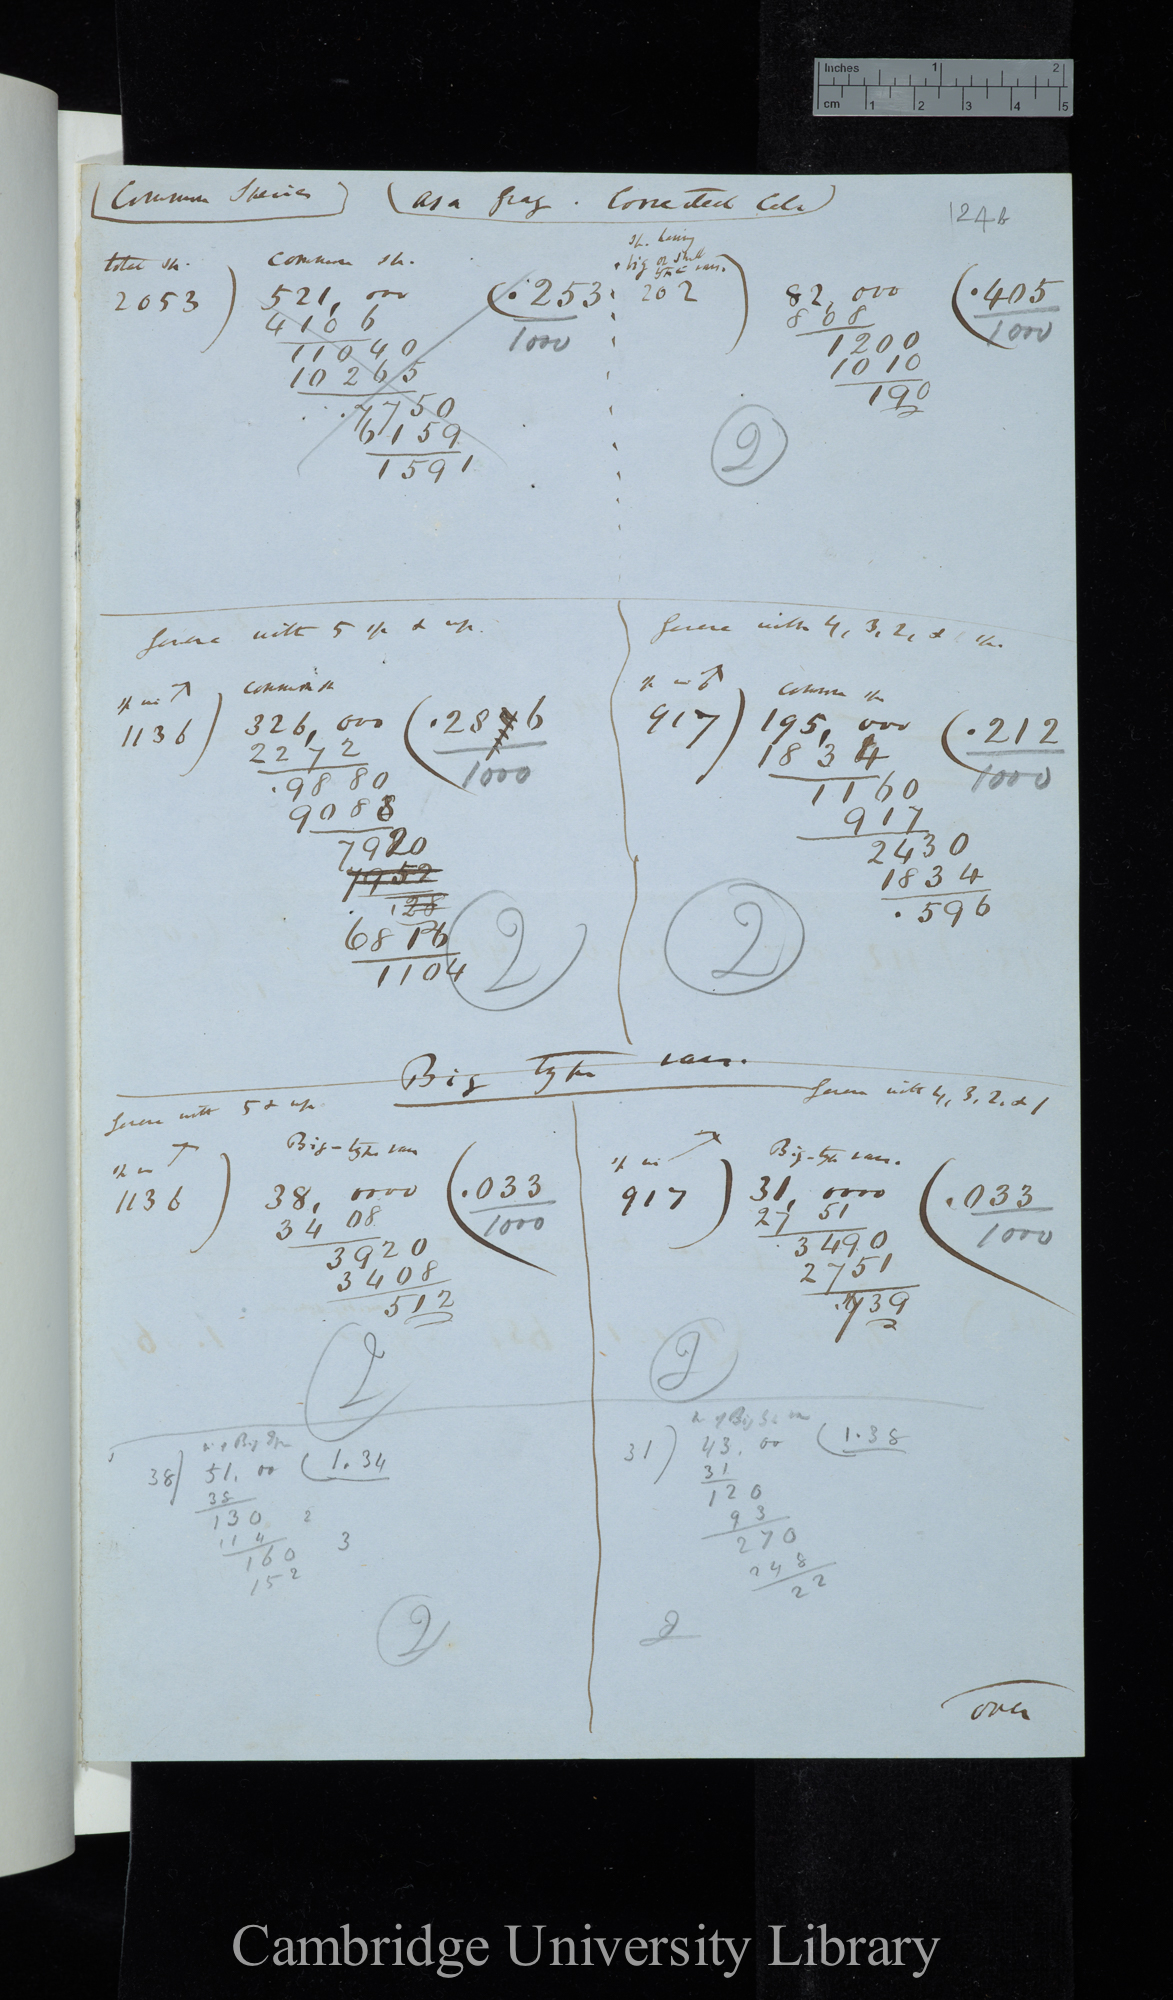 Inches 1 2
cm 1 2 3 4 5
(Common Species) (Asa Gray . Corrected Cala)
124b
total sp. common sp.
2053) 521, 000 (.253
1000
4106
11040
10265
.7750
6159
1591
sp. having
big or small
type vars.
202) 82, 000 (.405
1000
808
1200
1010
190
2
Genera with 5 sp & up.
sp in ↗ common sp
1136) 326, 000 (.286
1000
2272
.9880
9088
7920
7952
128
6816
1104
2
Genera with 4, 3, 2, & sp.
sp in ↗ common sp
917) 195, 000 (.212
1000
1834
1160
917
2430
1834
.596
2
Big type vars.
Genera with 5 & up
sp in ↗ Big-type vars
1136) 38, 0000 (.033
1000
3408
3920
3408
512
2
Genera with 4, 3, 2, & 1
sp in ↗ Big-type vars.
917) 31, 0000 (.033
1000
2751
3490
2751
.739
2
38) 51, 00 (1.34
38
130 2
114 3
160
152
2
31) 43, 00 (1.38
31
120
93
270
248
22
2
over
Cambridge University Library